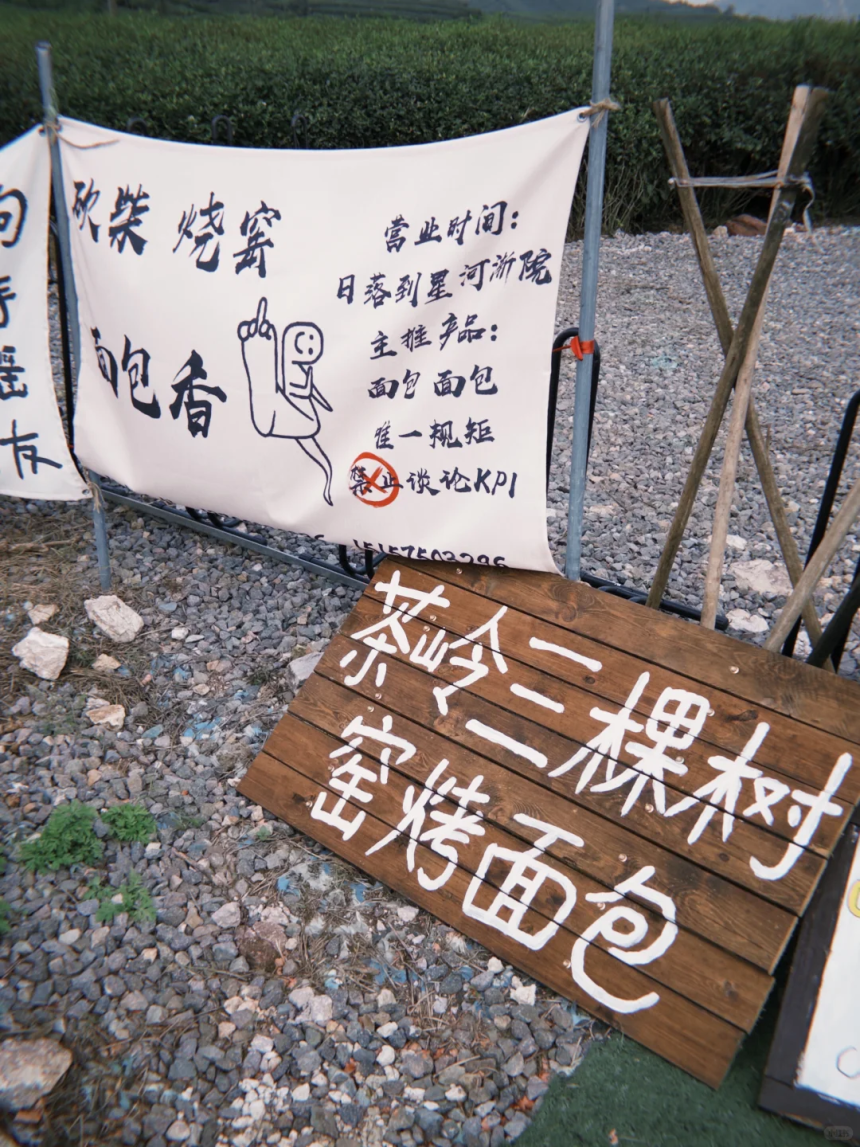 砍柴 烧窑
面包香
营业时间：
日落到星河浙院
主推产品：
面包 面包
唯一规矩
禁止谈论KPI
茶岭三棵树
窑烤面包